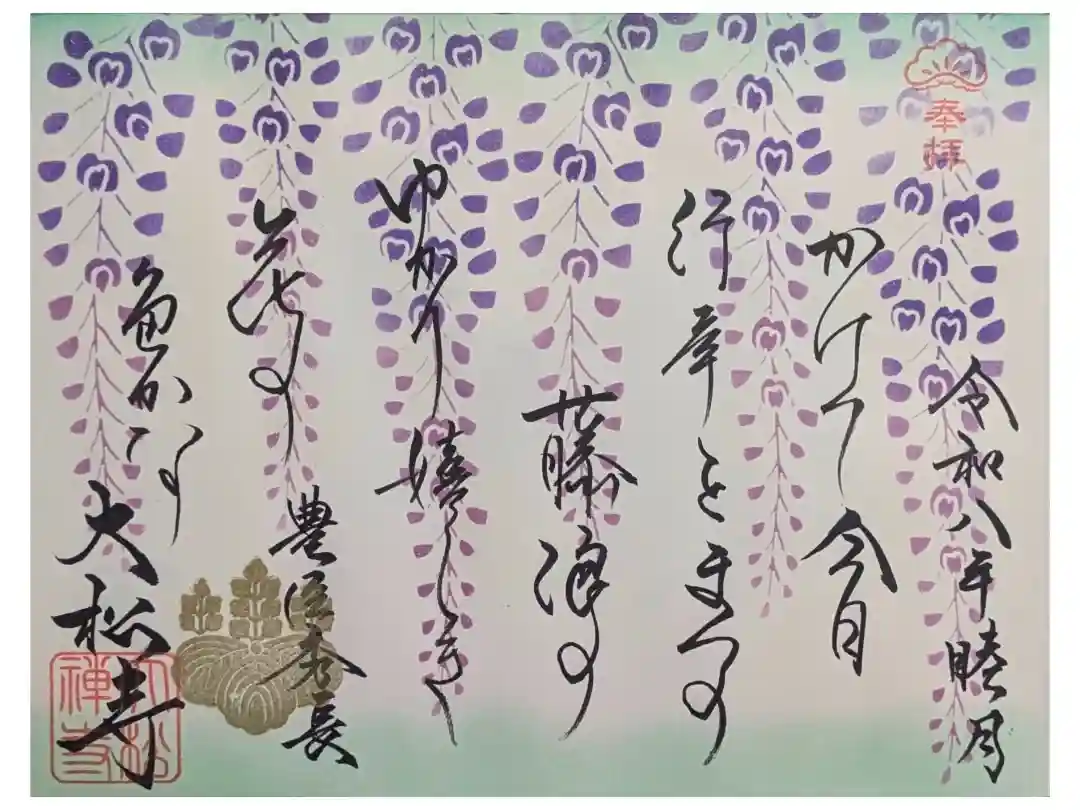 奉拝
令和八年睦月
かけて今日
行幸をまつの
藤浪の
ゆかり嬉しき
花の
色かな
豊臣秀長
大松寺
大松禅寺